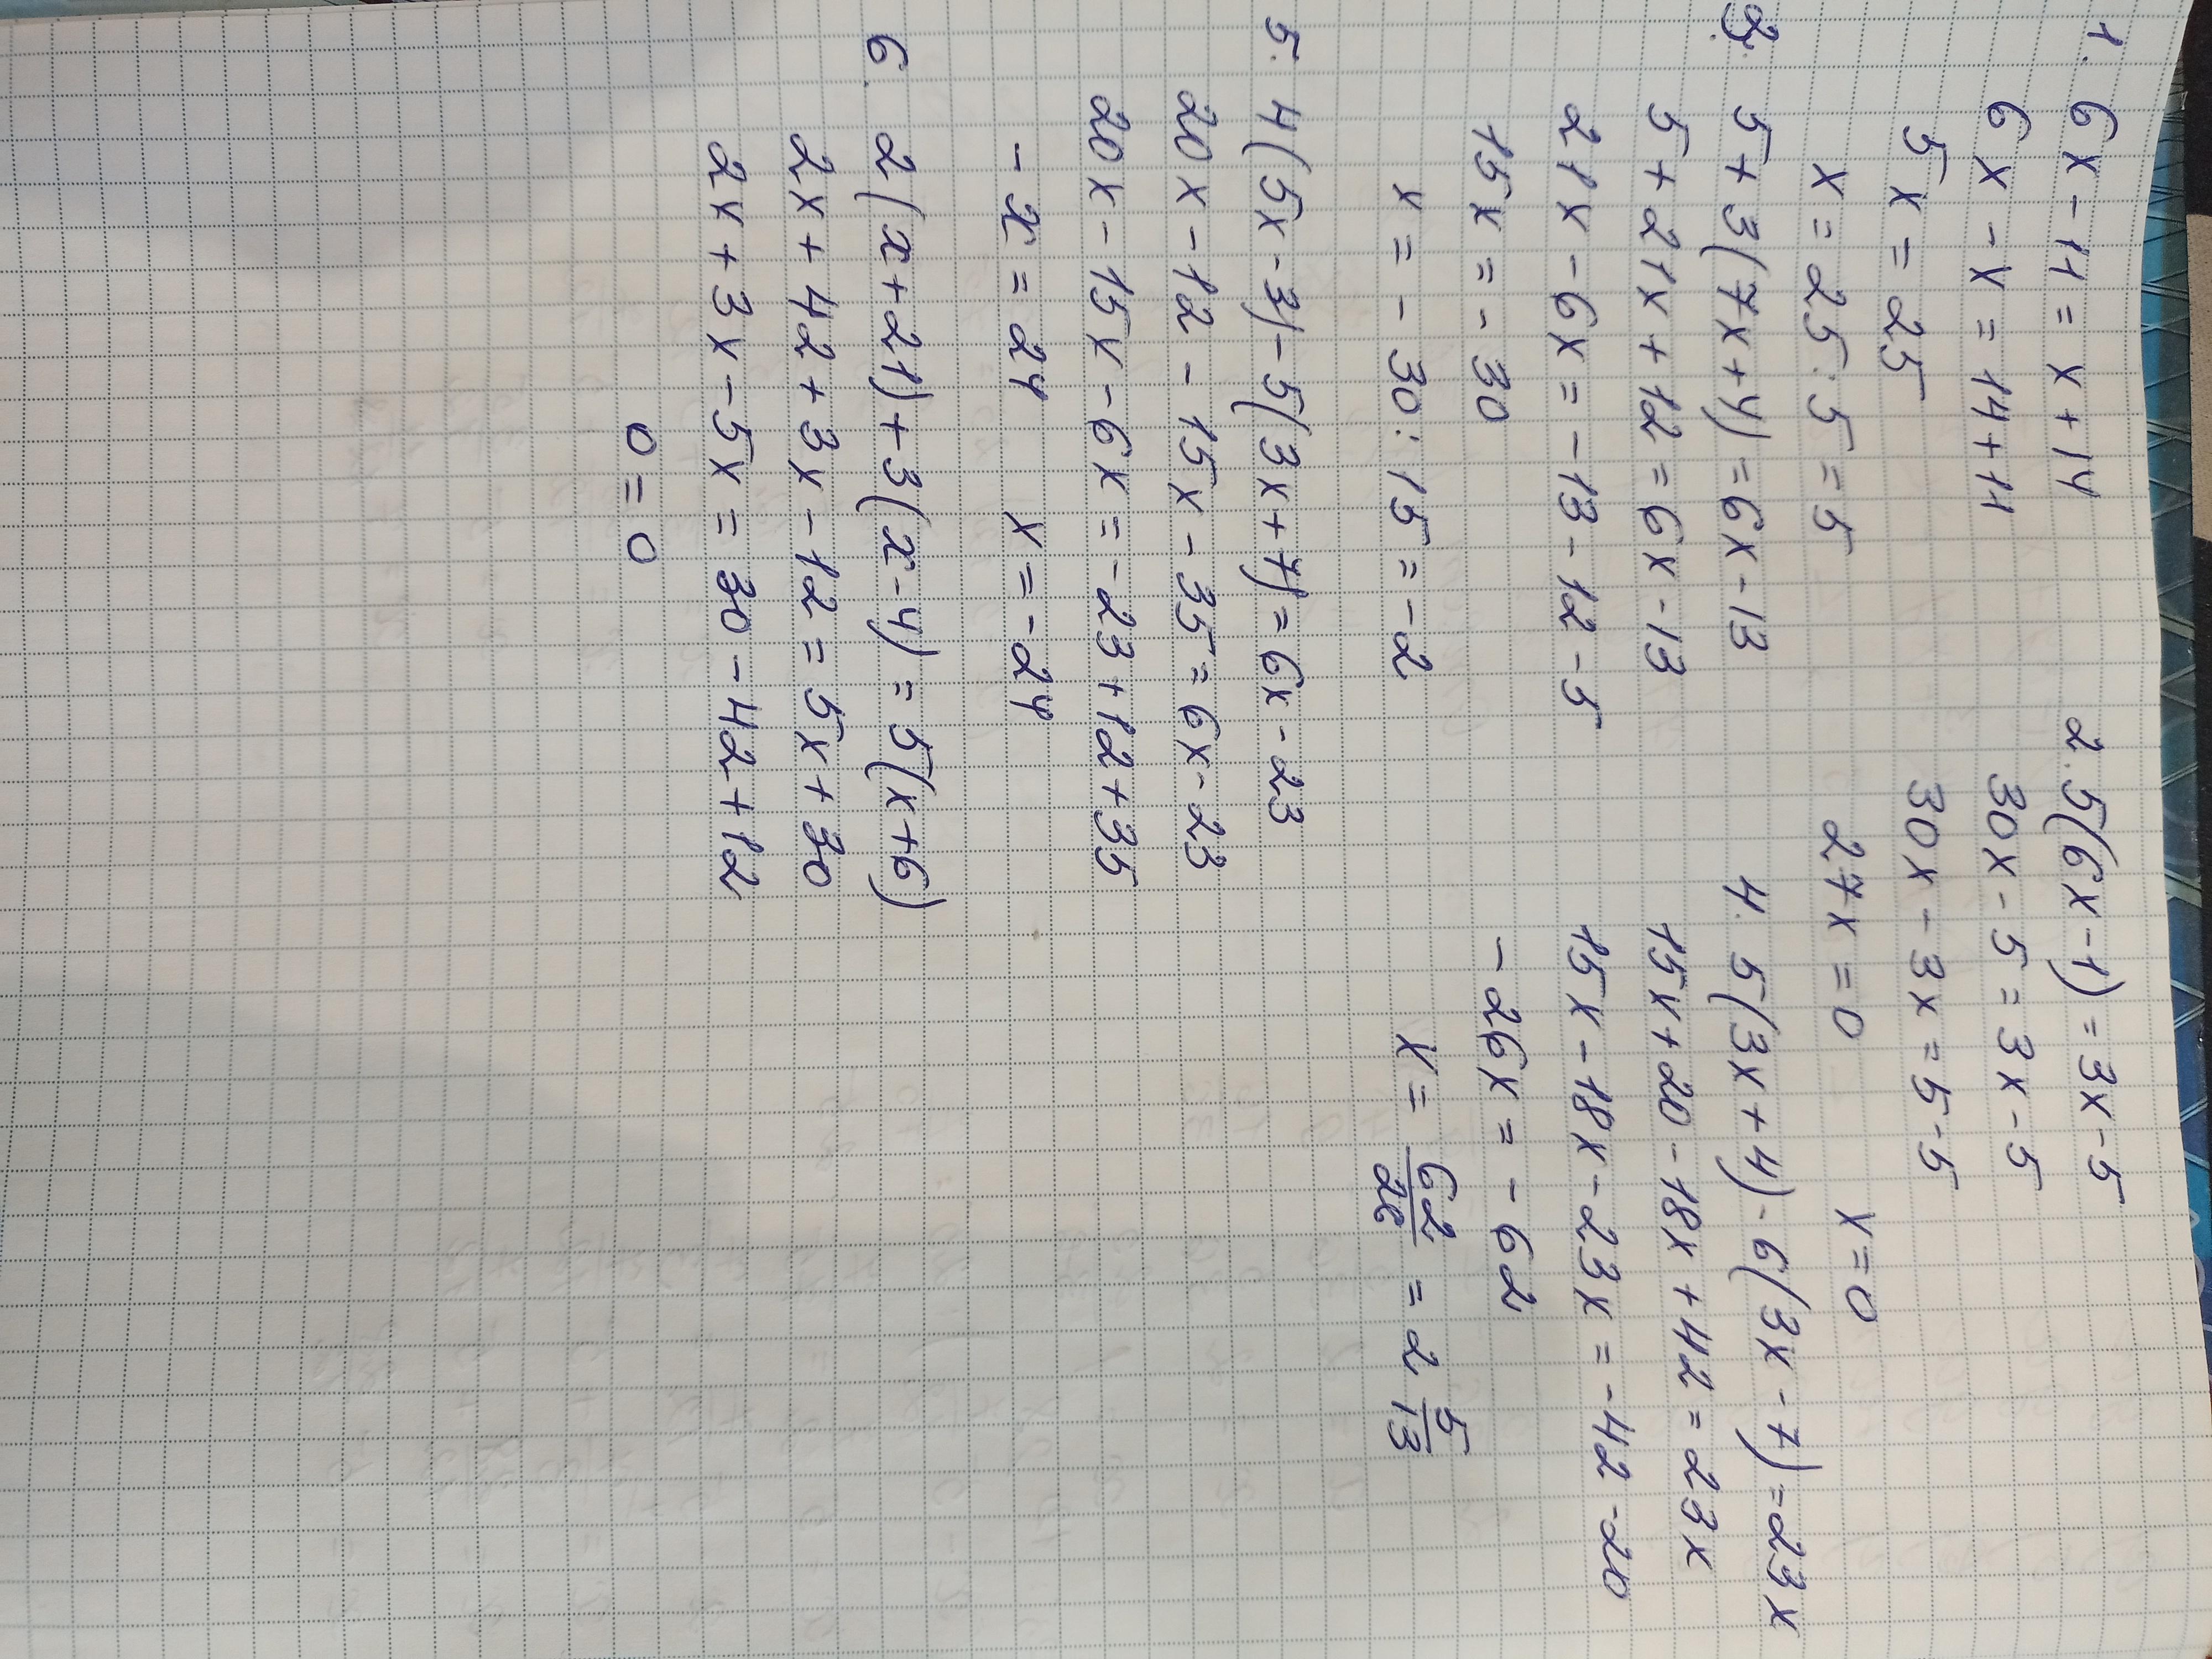 1. 6x - 11 = x + 14
6x - x = 14 + 11
5x = 25
x = 25 : 5 = 5
2. 5(6x - 1) = 3x - 5
30x - 5 = 3x - 5
30x - 3x = 5 - 5
27x = 0 x = 0
3. 5 + 3(7x + 4) = 6x - 13
5 + 21x + 12 = 6x - 13
21x - 6x = -13 - 12 - 5
15x = -30
x = -30 : 15 = -2
4. 5(3x + 4) - 6(3x - 7) = 23x
15x + 20 - 18x + 42 = 23x
15x - 18x - 23x = -42 - 20
-26x = -62
x = 62/26 = 2 5/13
5. 4(5x - 3) - 5(3x + 7) = 6x - 23
20x - 12 - 15x - 35 = 6x - 23
20x - 15x - 6x = -23 + 12 + 35
-x = 24 x = -24
6. 2(x + 21) + 3(x - 4) = 5(x + 6)
2x + 42 + 3x - 12 = 5x + 30
2x + 3x - 5x = 30 - 42 + 12
0 = 0